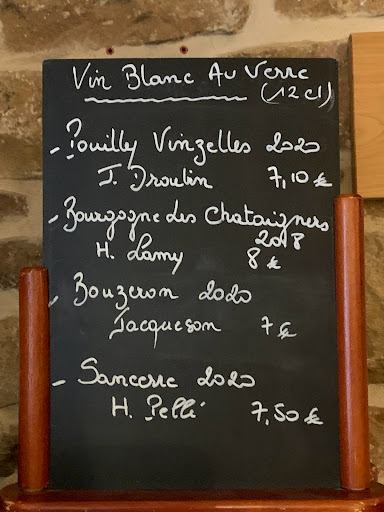 Vin Blanc Au Verre
(12 cl)
- Pouilly Vinzelles 2020
J. Drouhin 7,10 €
- Bourgogne des Chataigners
2018
H. Lamy 8 €
- Bouzeron 2020
Jacqueson 7 €
- Sancerre 2020
H. Pellé 7,50 €